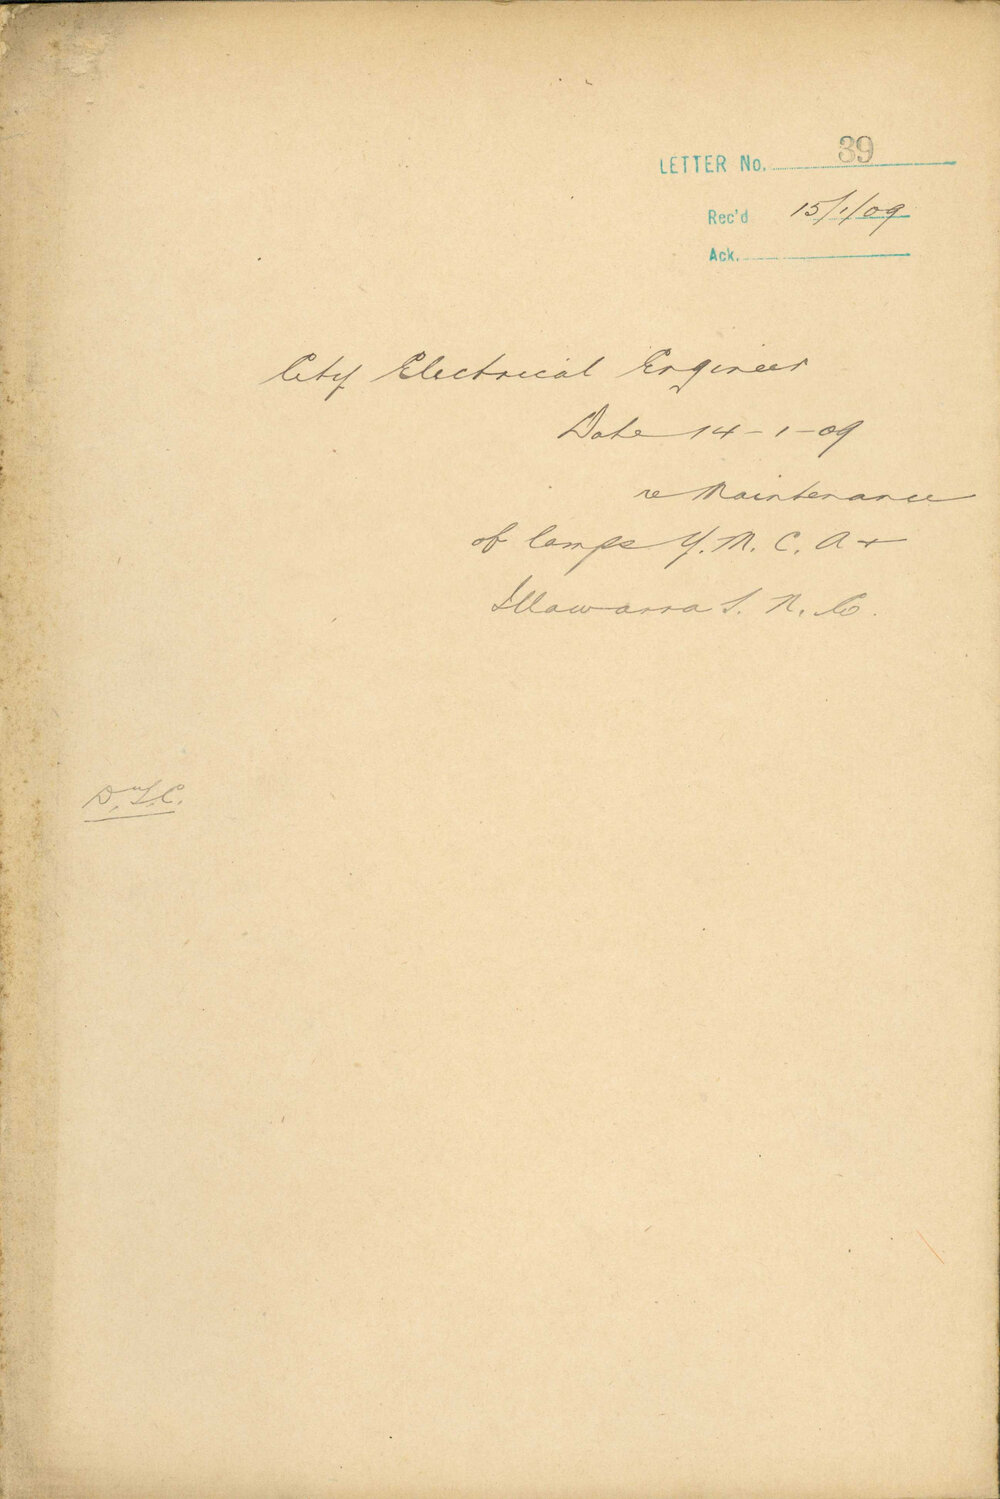 LETTER No. 39
Rec'd 15/1/09
Ack.
City Electrical Engineer
Date 14-1-09
re Maintenance
of lamps Y. M. C. A +
Illawarra S. N. Co.